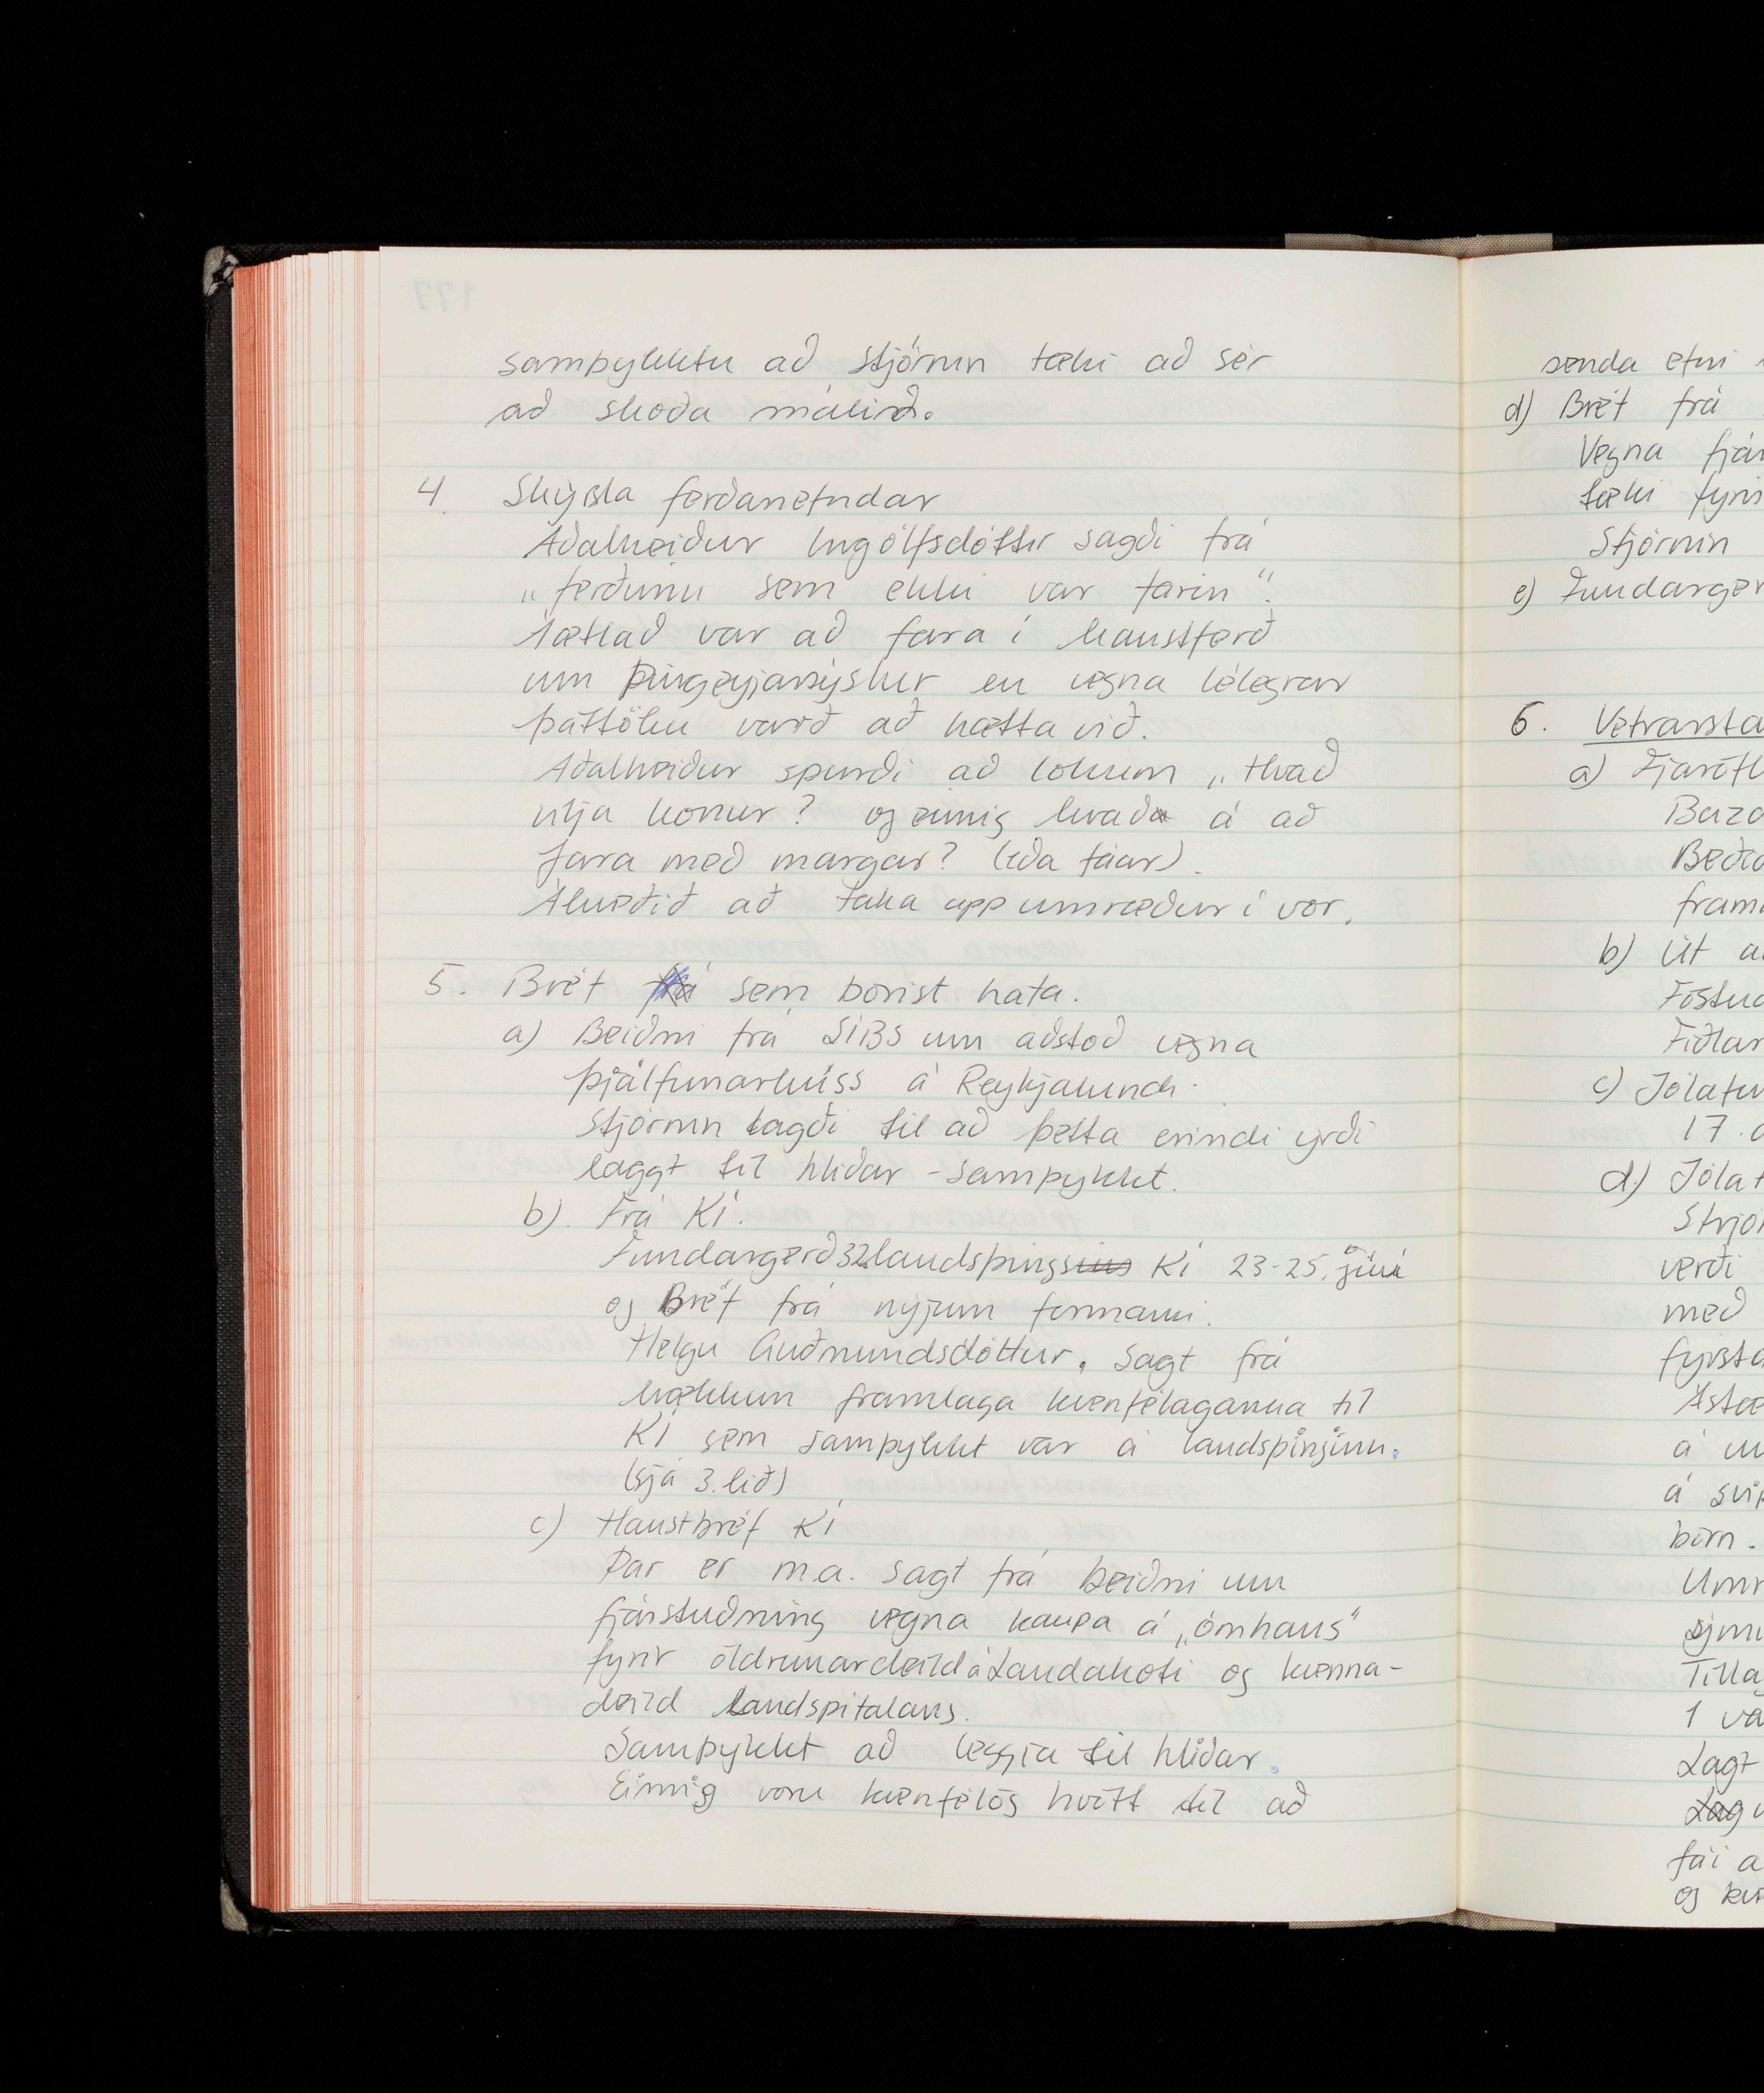 samþykktu að stjórnin tæki að sér
að skoða málið.
4. Skýrsla ferðanefndar
Aðalheiður Ingólfsdóttir sagði frá
„ferðinni sem ekki var farin“.
Áætlað var að fara í haustferð
um Þingeyjarsýslur en vegna lélegrar
þáttöku varð að hætta við.
Aðalheiður spurði að lokum „Hvað
vilja konur? og einnig hvað á að
fara með margar? (eða fáar).
Ákveðið að taka upp umræður í vor.
5. Bréf frá sem borist hafa.
a) Beiðni frá SÍBS um aðstoð vegna
þjálfunarhúss á Reykjalundi.
Stjórnin lagði til að þetta erindi yrði
laggt til hliðar - samþykkt.
b). Frá KÍ.
Fundargerð 32. landsþingsins KÍ 23-25. júní
og Bréf frá nýjum formanni.
Helgu Guðmundsdóttur. Sagt frá
hækkun framlaga kvenfélaganna til
KÍ sem samþykkt var á landsþinginu.
(sjá 3. lið)
c) Haustbréf KÍ
Þar er m.a. sagt frá beiðni um
fjárstuðning vegna kaupa á „ómhaus“
fyrir öldrunardeild á Landakoti og kvenna-
deild Landspitalans.
Samþykkt að leggja til hliðar.
Einnig voru kvenfélög hvött til að
senda efni
d) Bréf frá
Vegna
tæki
Stjórnin
e)
6.
a)
b) Út
c)
17.
d)
verði
með
á
á
börn.
1
Lagt
fái
og